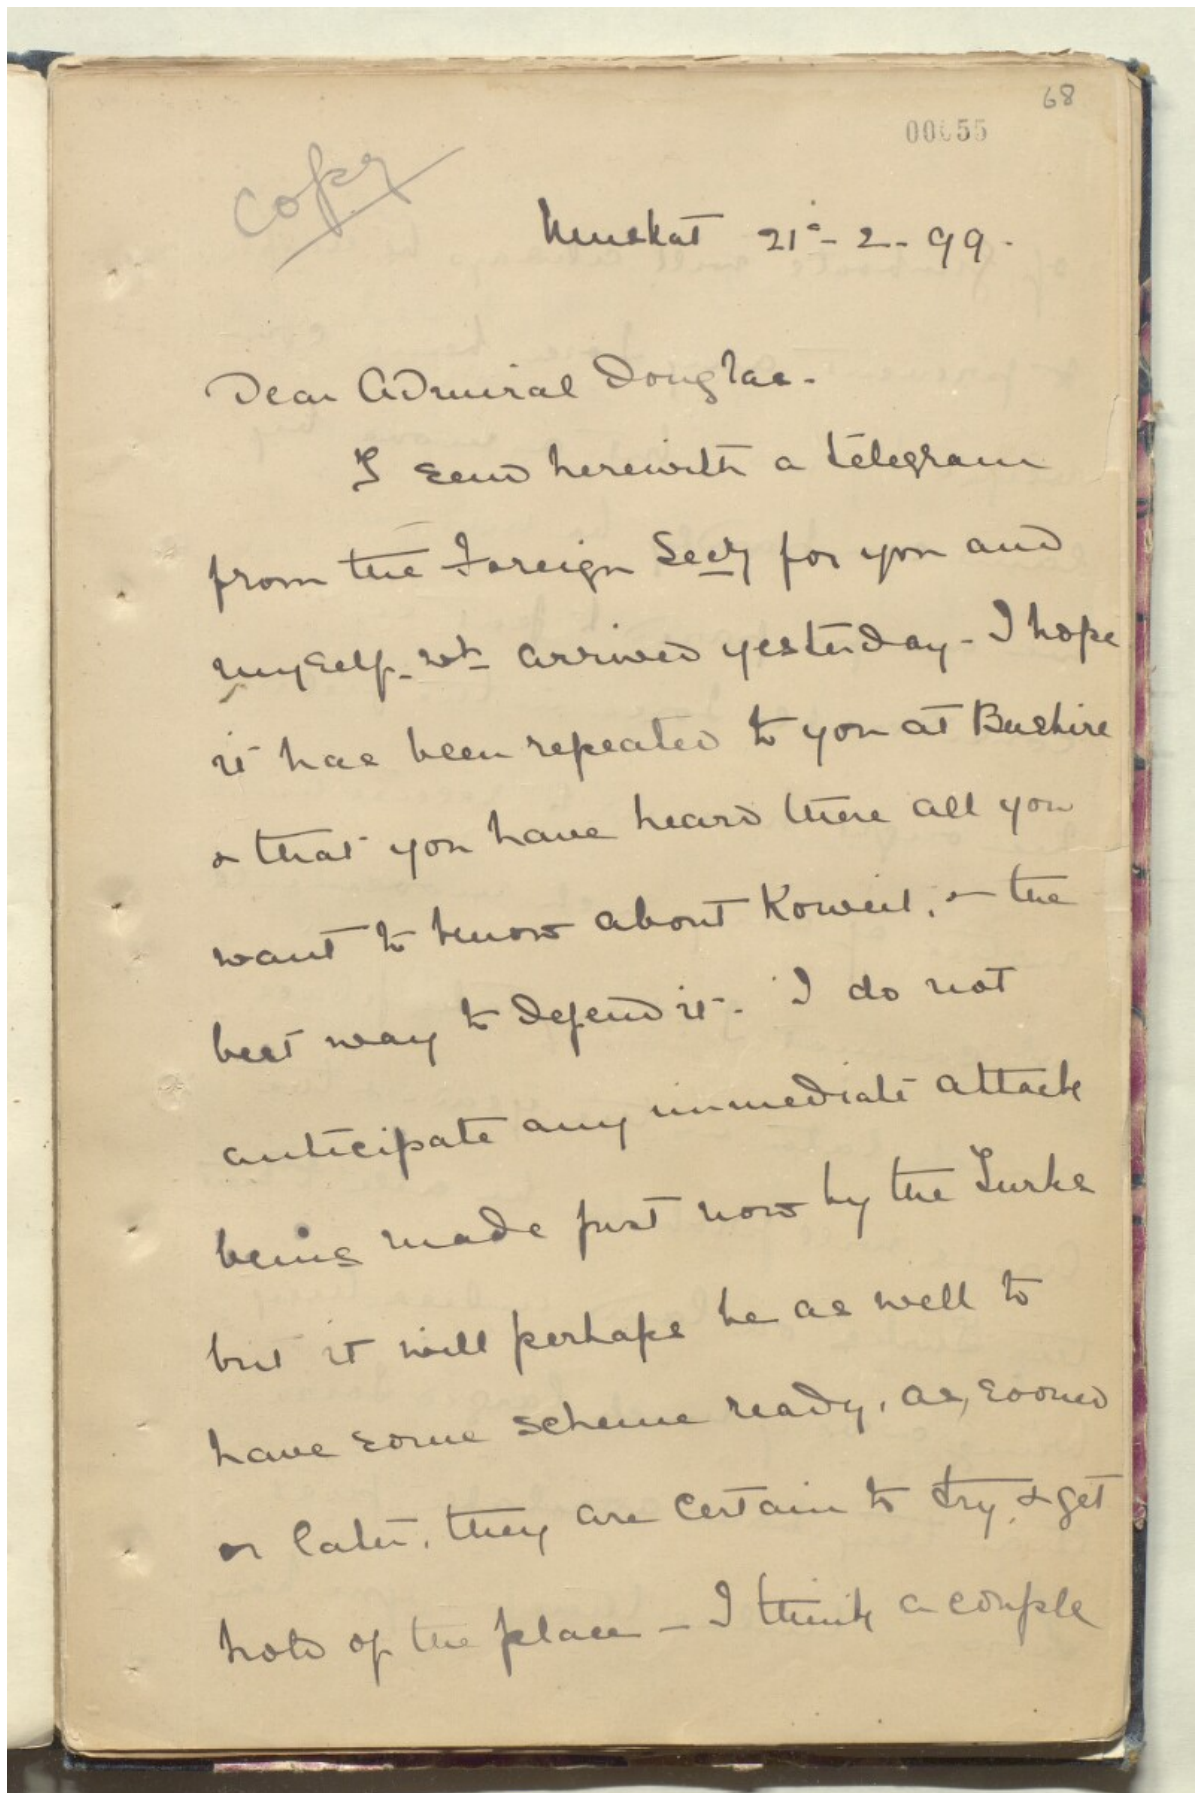 68
00055
Copy
Muskat 21st - 2 - 99.
Dear Admiral Douglas.
I send herewith a telegram
from the Foreign Secy for you and
myself - wh arrived yesterday - I hope
it has been repeated to you at Bushire
& that you have heard there all you
want to know about Koweit, & the
best way to defend it. I do not
anticipate any immediate attack
being made just now by the Turks
but it will perhaps be as well to
have some scheme ready, as, sooner
or later, they are certain to try & get
hold of the place - I think a couple